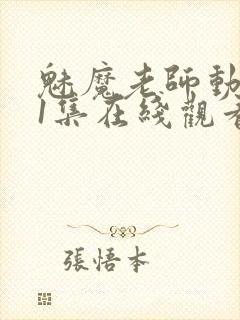 魅魔老師動
1集在綫觀看
張悟本